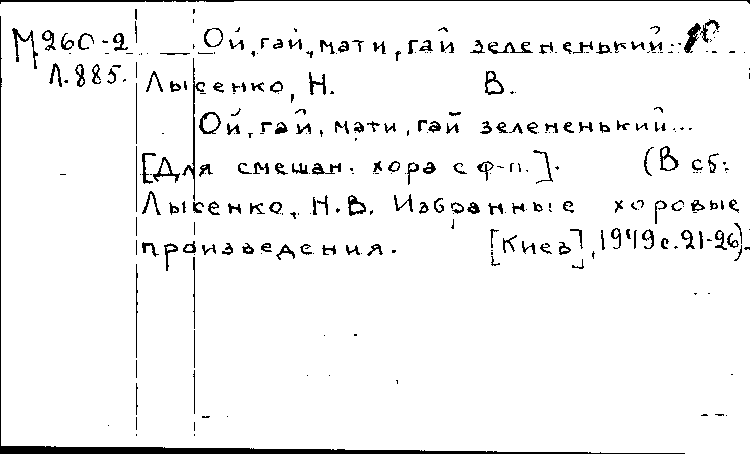 М260-2 Ой, гай, мати, гай зелененький... 10
Л.885.
Лысенко, Н. В.
Ой, гай, мати, гай зелененький...
[Для смешан. хора с ф-п.]. (В сб:
Лысенко, Н.В. Избранные хоровые
произведения. [Киев], 1949 с. 21-26).